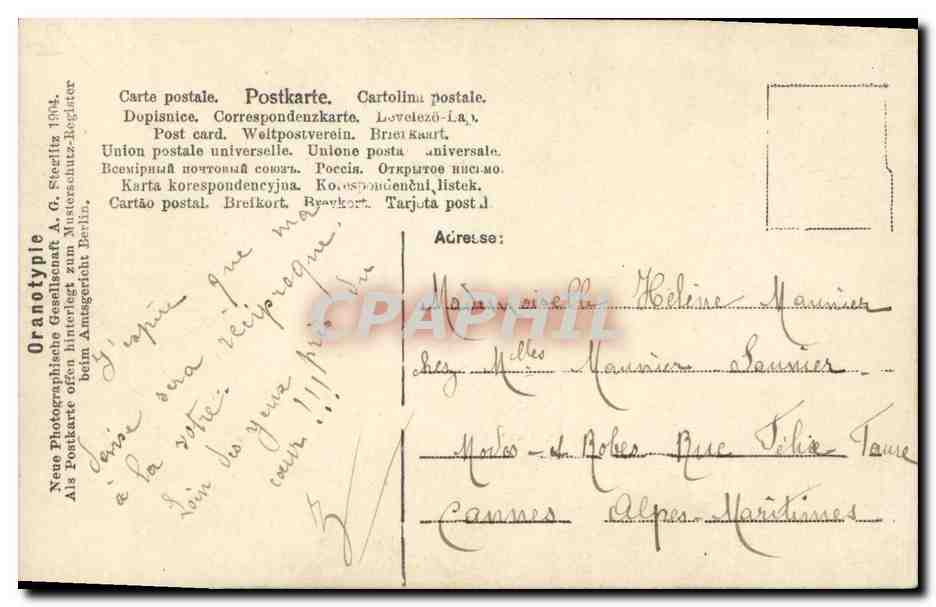 Oranotypie
Neue Photographische Gesellschaft A. G. Steglitz 1904.
Als Postkarte offen hinterlegt zum Musterschutz-Register
beim Amtsgericht Berlin.
Carte postale. Postkarte. Cartolina postale.
Dopisnice. Correspondenzkarte. Levelező-Lap.
Post card. Weltpostverein. Briefkaart.
Union postale universelle. Unione posta universale.
Всемірный почтовый союзъ. Россія. Открытое письмо.
Karta korespondencyjna. Korespondenční listek.
Cartão postal. Brefkort. Brevkort. Tarjeta postal.
J'espère que ma
sera réciproque
à la votre.
Loin des yeux près du
cœur !!!
Adresse:
Mademoiselle Hélène Maunier
chez Mlles Maunier Saunier
Modes et Robes Rue Félix Faure
Cannes Alpes-Maritimes
CPAPHIL